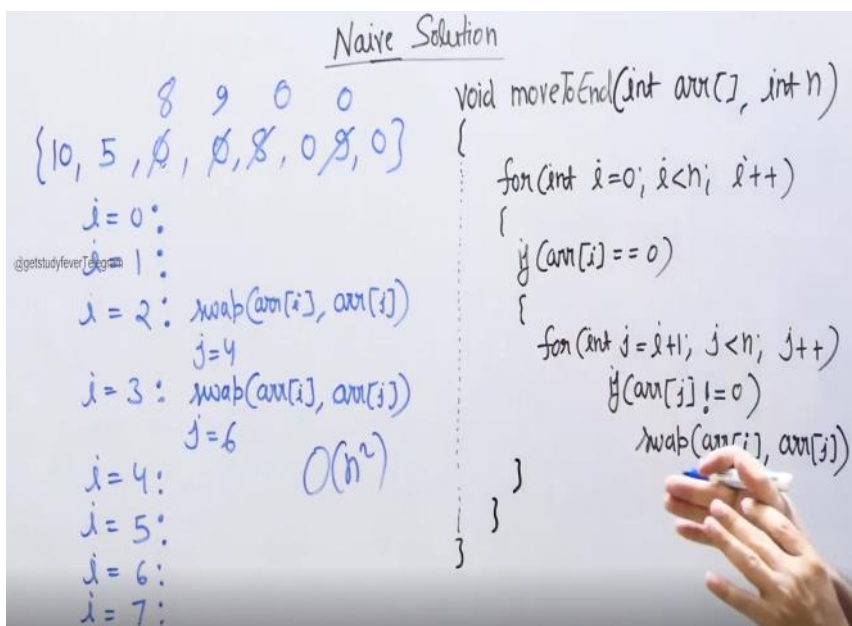 Naive Solution
8 9 0 0
{10, 5, 0, 0, 8, 0 9, 0}
i = 0:
i = 1:
@getstudyfeverTelegram
i = 2: swap(arr[i], arr[j])
j=4
i = 3: swap(arr[i], arr[j])
j=6
i = 4:
O(n²)
i = 5:
i = 6:
i = 7:
void moveToEnd(int arr[], int n)
{
for(int i=0; i<n; i++)
{
if(arr[i] == 0)
{
for(int j=i+1; j<n; j++)
if(arr[j] != 0)
swap(arr[i], arr[j])
}
}
}